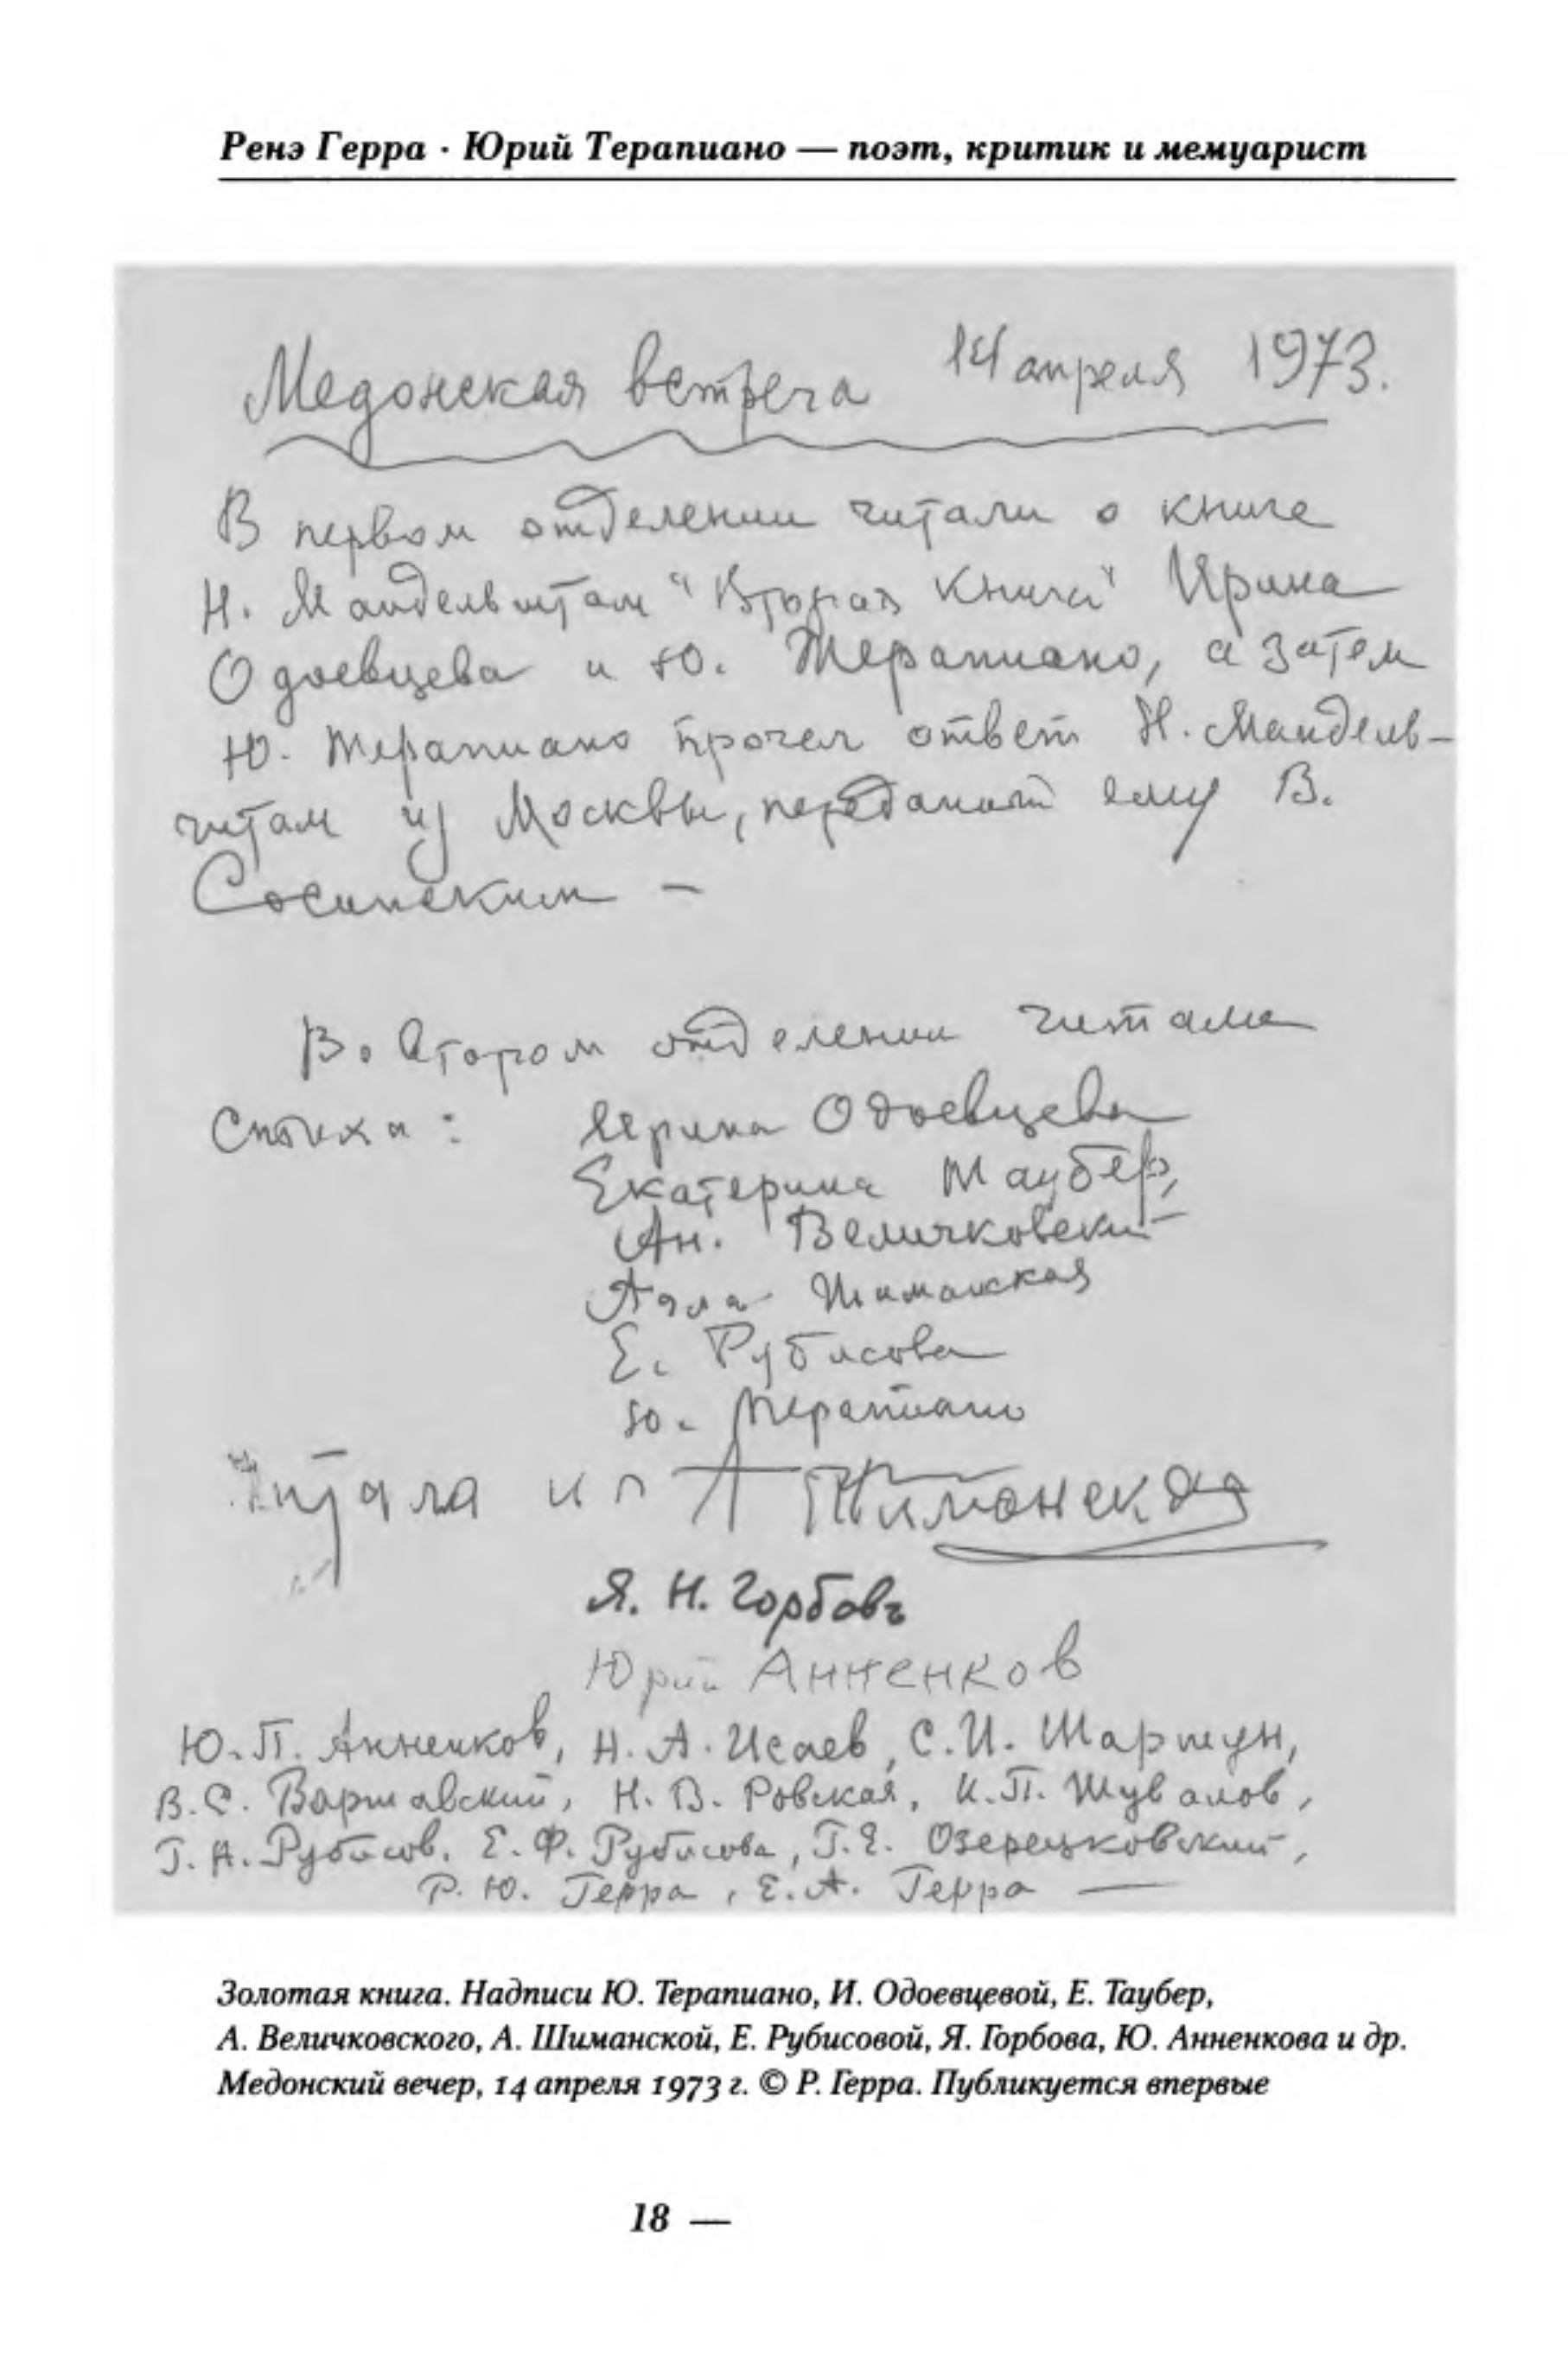 Ренэ Герра · Юрий Терапиано — поэт, критик и мемуарист
Медонская встреча 14 апреля 1973.
В первом отделении читали о книге
Н. Мандельштам "Вторая книга" Ирина
Одоевцева и Ю. Терапиано, а затем
Ю. Терапиано прочел ответ Н. Мандель-
штам из Москвы, переданный ему В.
Сосинским —
Во втором отделении читали
стихи: Ирина Одоевцева
Екатерина Таубер,
Ан. Величковский
Алла Шиманская
Е. Рубисова
Ю. Терапиано
Читала А Шиманская
Я. Н. Горбовъ
Юрий Анненков
Ю. П. Анненков, Н. А. Исаев, С. И. Шаршун,
В. С. Варшавский, Н. В. Ровская, И. П. Шувалов,
Г. А. Рубисов, Е. Ф. Рубисова, Г. Е. Озерецковский,
Р. Ю. Герра, Е. А. Герра —
Золотая книга. Надписи Ю. Терапиано, И. Одоевцевой, Е. Таубер,
А. Величковского, А. Шиманской, Е. Рубисовой, Я. Горбова, Ю. Анненкова и др.
Медонский вечер, 14 апреля 1973 г. © Р. Герра. Публикуется впервые
18 —